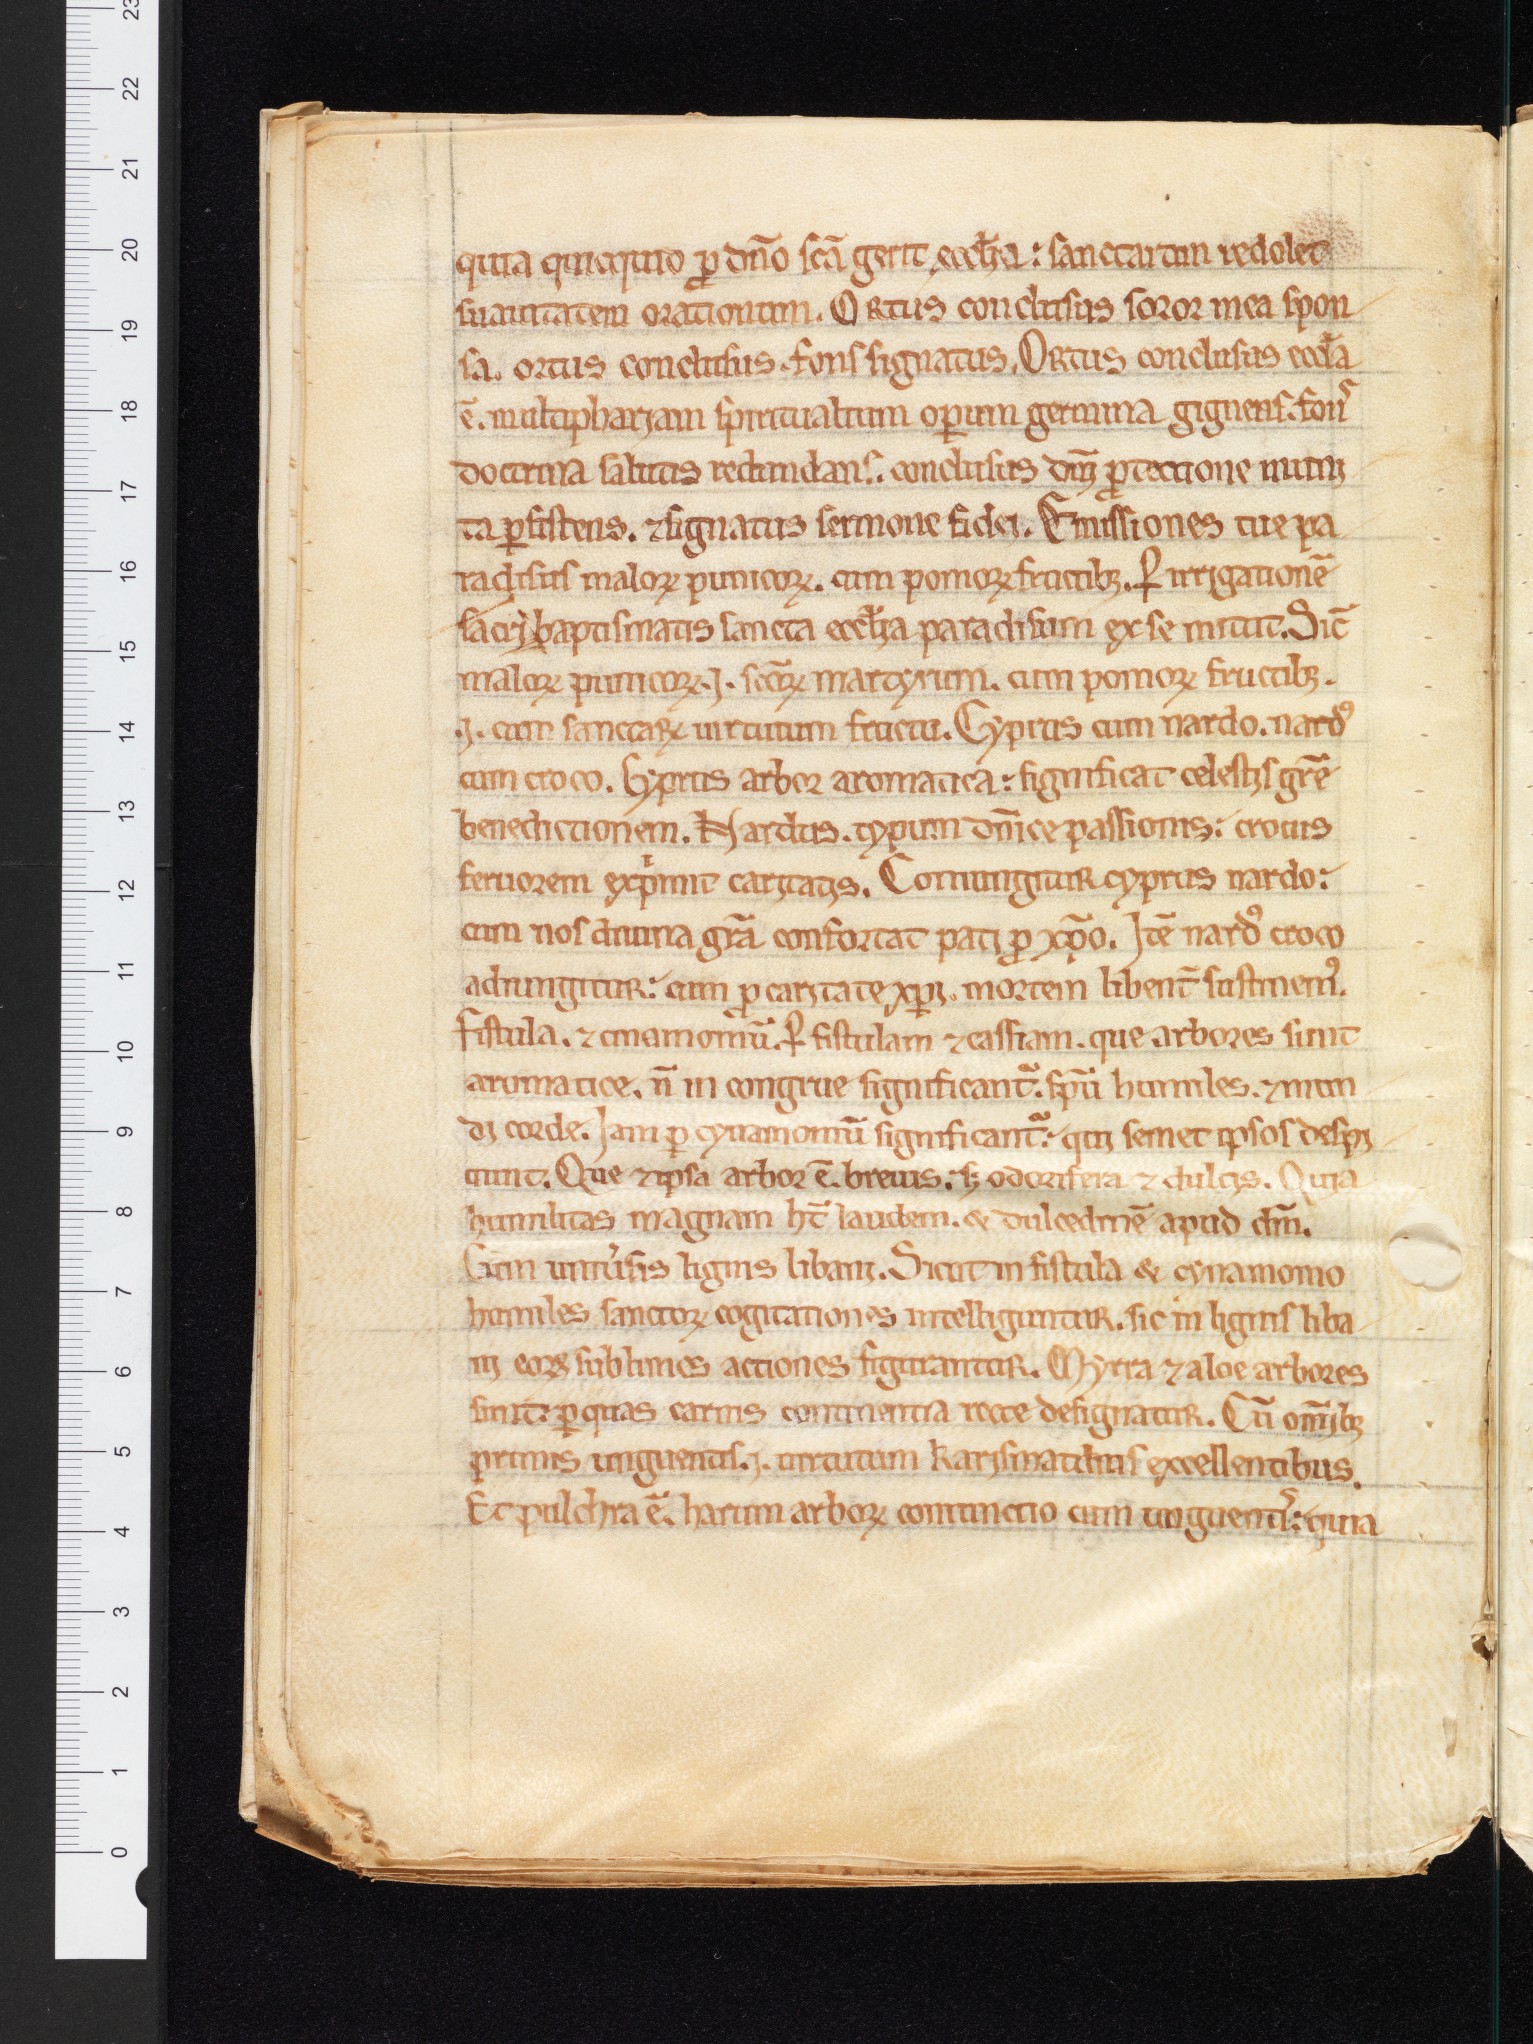 quia quicquid ꝓ dn̄o sc̄a gerit ecctͣa: sanctarum redolet
suauitatem orationum. ORtus conclusus soror mea spon
sa. ortus conclusus. fons signatus. ORtus conclusus eccl̃a
ē. multipharjam spiritualium oꝑum germina gignens. fons
doctrina salutis redundans. conclusus dnī ꝓtectione muni
ta ꝑsistens. ⁊ signatus sermone fidei. Emissiones tue pa
radisus maloꝝ punicoꝝ. cum pomoꝝ fructibꝫ. ꝑ irrigationē
sacri baptismatis sancta ecctͣia paradisum ex se mittit. Sic̄
maloꝝ punicoꝝ .j. scōꝝ martyrum. cum pomoꝝ fructibꝫ.
.j. cum sanctaꝝ uirtutum fructu. Cyprus cum nardo. nardꝰ
cum croco. Cyprus arbor aromatica: significat celestis gr̄e
benedictionem. Nardus. typum dn̄ice passionis: crocus
feruorem expͥmit caritatis. ConiungituR cyprus nardo:
cum nos diuina gr̄a confortat pati ꝓ xp̄o. Itē nardꝰ croco
adiungituR: cum ꝓ caritate xp̄i. mortem libent̄ sustinemꝰ.
fistula. ⁊ cinamomū. ꝑ fistulam ⁊ cassiam. que arbores sunt
aromatice. n̄ in congrue significantᷣ. sp̄u humiles. ⁊ mun
di corde. Jam ꝑ cynamomū significantᷣ: qui semet ipsos despi
ciunt. Que ⁊ ipsa arbor ē. breuis: sꝫ odorifera ⁊ dulcis. Quia
humilitas magnam ht̄ laudem. & dulcedinē apud dm̄.
Cum uniuͥsis lignis libani. Sicut in fistula & cynamomo
humiles sanctoꝝ cogitationes intelliguntuR. sic in lignis liba
ni eoꝝ sublimes actiones figurantuR. Myrra ⁊ aloe arbores
sunt: ꝑ quas carnis continentia recte designatuR. Cū om̄ibꝫ
primis unguentis .j. uirtutum karismatibus excellentibus.
Et pulchra ē. harum arboꝝ coniunctio cum unguentis: quia